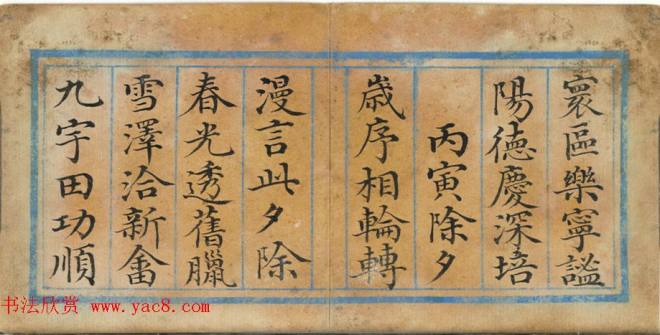 寰區樂寧謐
陽徳慶深培
丙寅除夕
歳序相輪轉
漫言此夕除
春光透舊臘
雪澤洽新畬
九宇田功順
书法欣赏 www.yac8.com